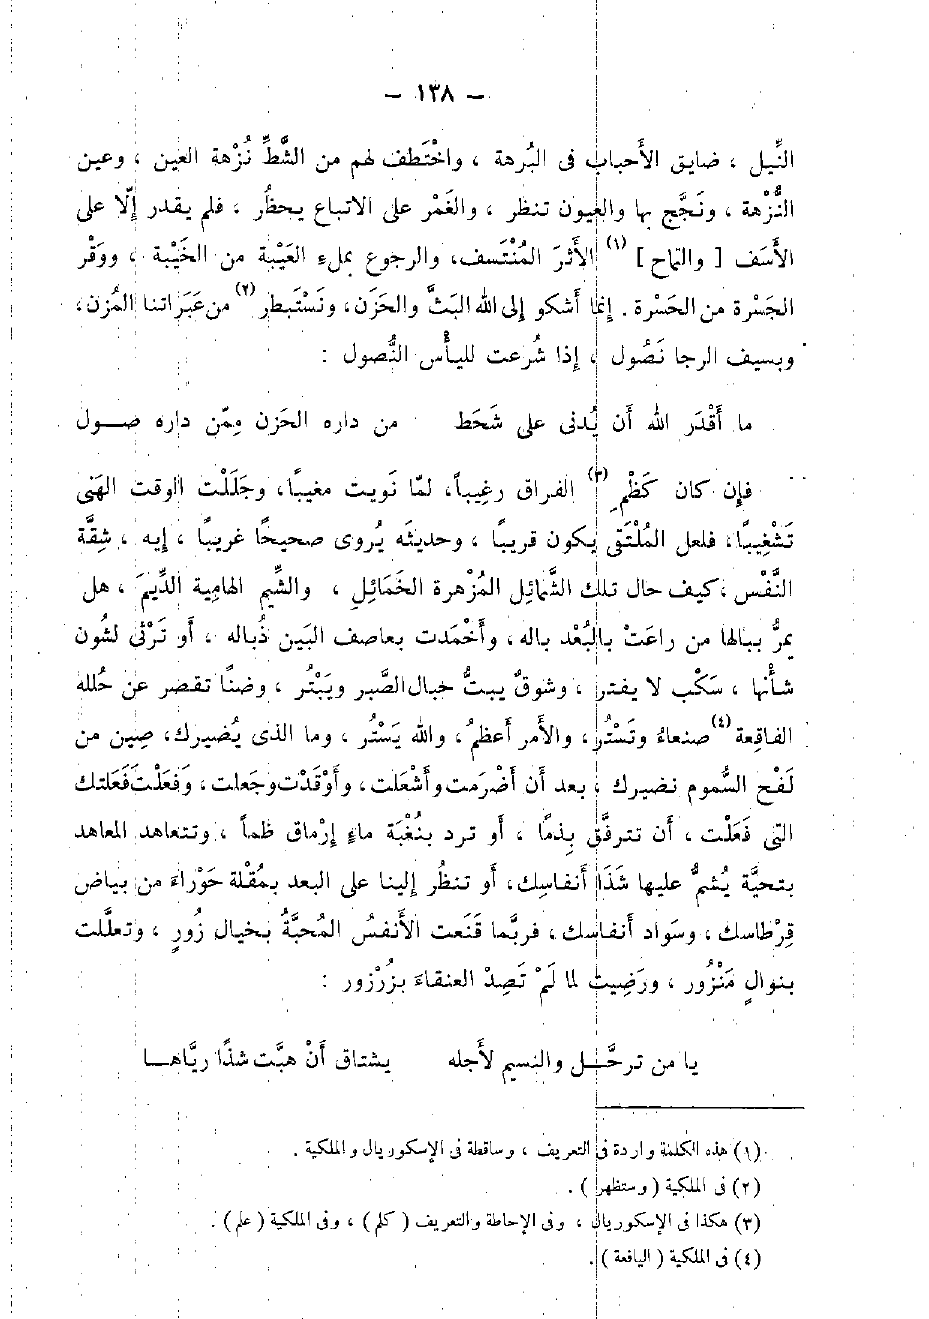 – ١٣٨ –
النِّيل ، ضايق الأحباب فى البُرهة ، واخْتَطف لهم من الشَّطِّ نُزهة العين ، وعين
النُّزْهة ، ونَجَّج بها والعيون تنظر ، والغَمْر على الاتباع يحظُر ، فلم يقدر إلَّا على
الأَسَف [ والتماح ] (١) الأَثرَ المُنْتَسف، والرجوع بملء العَيْبة من الخَيْبة ، ووَقْر
الجَسْرة من الحَسْرة . إنما أشكو إلى الله البَثَّ والحَزَن، ونَسْتَبطر (٢) من عَبَراتنا المُزن،
وبسيف الرجا نَصُول ، إذا شُرعت لليأْس النُّصول :
ما أَقْدَر الله أن يُدنى على شَحَط   من داره الحَزن مِمّن داره صول
فإن كان كَظْمِ (٣) الفراق رغيباً، لمّا نَويت مغيبًا، وجَلَلْت الوقت الهَنى
تَشْغِيبًا، فلعل المُلْتَقى يكون قريبًا ، وحديثه يُروى صحيحًا غريبًا ، إيه ، شِقَّة
النَّفْس ، كيف حال تلك الشَّمائل المُزْهرة الخَمَائلِ ، والشِّيم الهامية الدِّيمَ ، هل
يمرُّ ببالها من راعَتْ بالبُعْد باله، وأَخْمَدت بعاصف البَين ذُباله ، أو تَرْثى لشُون
شأْنها ، سَكْب لا يفتر ، وشوقٌ يبتُّ حبال الصَّبر ويَبْتُر ، وضنًا تقصر عن حُلله
الفاقِعة (٤) صنعاءُ وتَسْتُر، والأمر أعظمُ، والله يَسْتُر ، وما الذى يُضيرك، صِين من
لَفْح السَّموم نضيرك ، بعد أن أَضْرَمت وأَشْعَلت، وأَوْقَدْت وجَعلت، وَفعَلْت فَعَلتك
التى فَعَلْت ، أن تترفَّق بِذمًا ، أو ترد بنُغْبَة ماءٍ إرْماق ظمأً ، وتتعاهد المعاهد
بتحيَّة يُشمُّ عليها شَذَا أنفاسِك، أو تنظُر إلينا على البعد بمُقْلة حَوْراءَ من بياض
قِرْطاسك ، وسَواد أنفاسك ، فربَّما قَنَعت الأَنفسُ المُحبَّةُ بخيال زُورٍ ، وتعلَّلت
بنوالٍ مَنْزُور ، ورَضِيت لما لَمْ تَصِدْ العنقاءَ بزُرْزور :
يا من ترحَّـل والنسيم لأَجله   يشتاق أَنْ هبَّت شذًا ريَّاهـا
(١) هذه الكلمة واردة فى التعريف ، وساقطة فى الإسكوريال والملكية .
(٢) فى الملكية ( وستظهر ) .
(٣) هكذا فى الإسكوريال ، وفى الإحاطة والتعريف ( كلم ) ، وفى الملكية ( علم ) .
(٤) فى الملكية ( اليافعة ) .